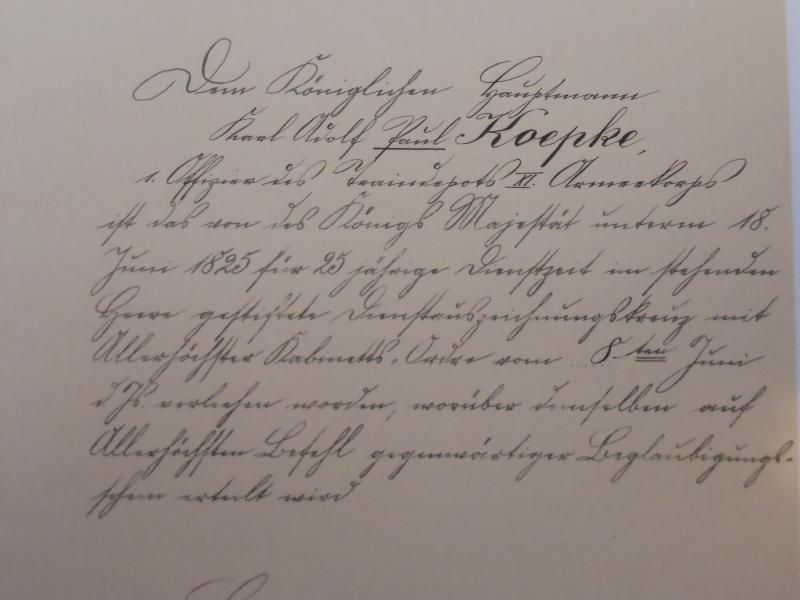 Dem Königlichen Hauptmann
Karl Adolf Paul Koepke,
1. Offizier des Traindepots XI. Armeekorps
ist das von des Königs Majestät unterm 18.
Juni 1825 für 25 jährige Dienstzeit im stehenden
Heere gestiftete Dienstauszeichnungskreuz mit
Allerhöchster Kabinetts-Ordre vom 8.ten Juni
d. Js. verliehen worden, worüber demselben auf
Allerhöchsten Befehl gegenwärtiger Beglaubigungs-
schein erteilt wird